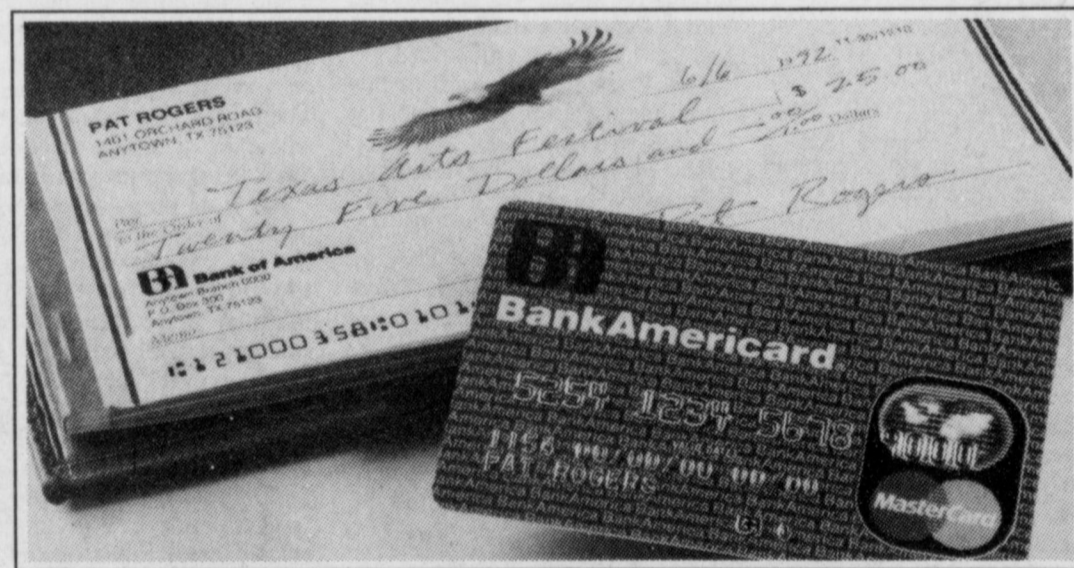 PAT ROGERS
1451 ORCHARD ROAD
ANYTOWN, TX 75123
6/6 1992 11-35/1210
Pay to the Order of Texas Arts Festival $ 25.00
Twenty Five Dollars and Dollars
Bank of America
Anytown Branch 0000
P.O. Box 300
Anytown, TX 75123
Memo
Pat Rogers
BA
BankAmericard
1234 5678
PAT ROGERS
MasterCard